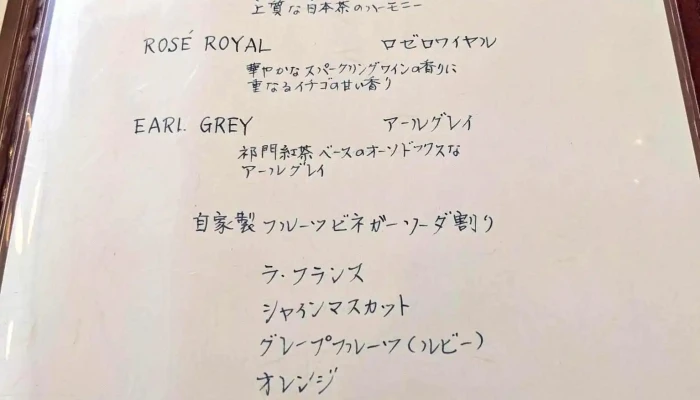 上質な日本茶のハーモニー
ROSÉ ROYAL ロゼロワイヤル
華やかなスパークリングワインの香りに
重なるイチゴの甘い香り
EARL GREY アールグレイ
祁門紅茶ベースのオーソドックスな
アールグレイ
自家製フルーツビネガーソーダ割り
ラ・フランス
シャインマスカット
グレープフルーツ(ルビー)
オレンジ